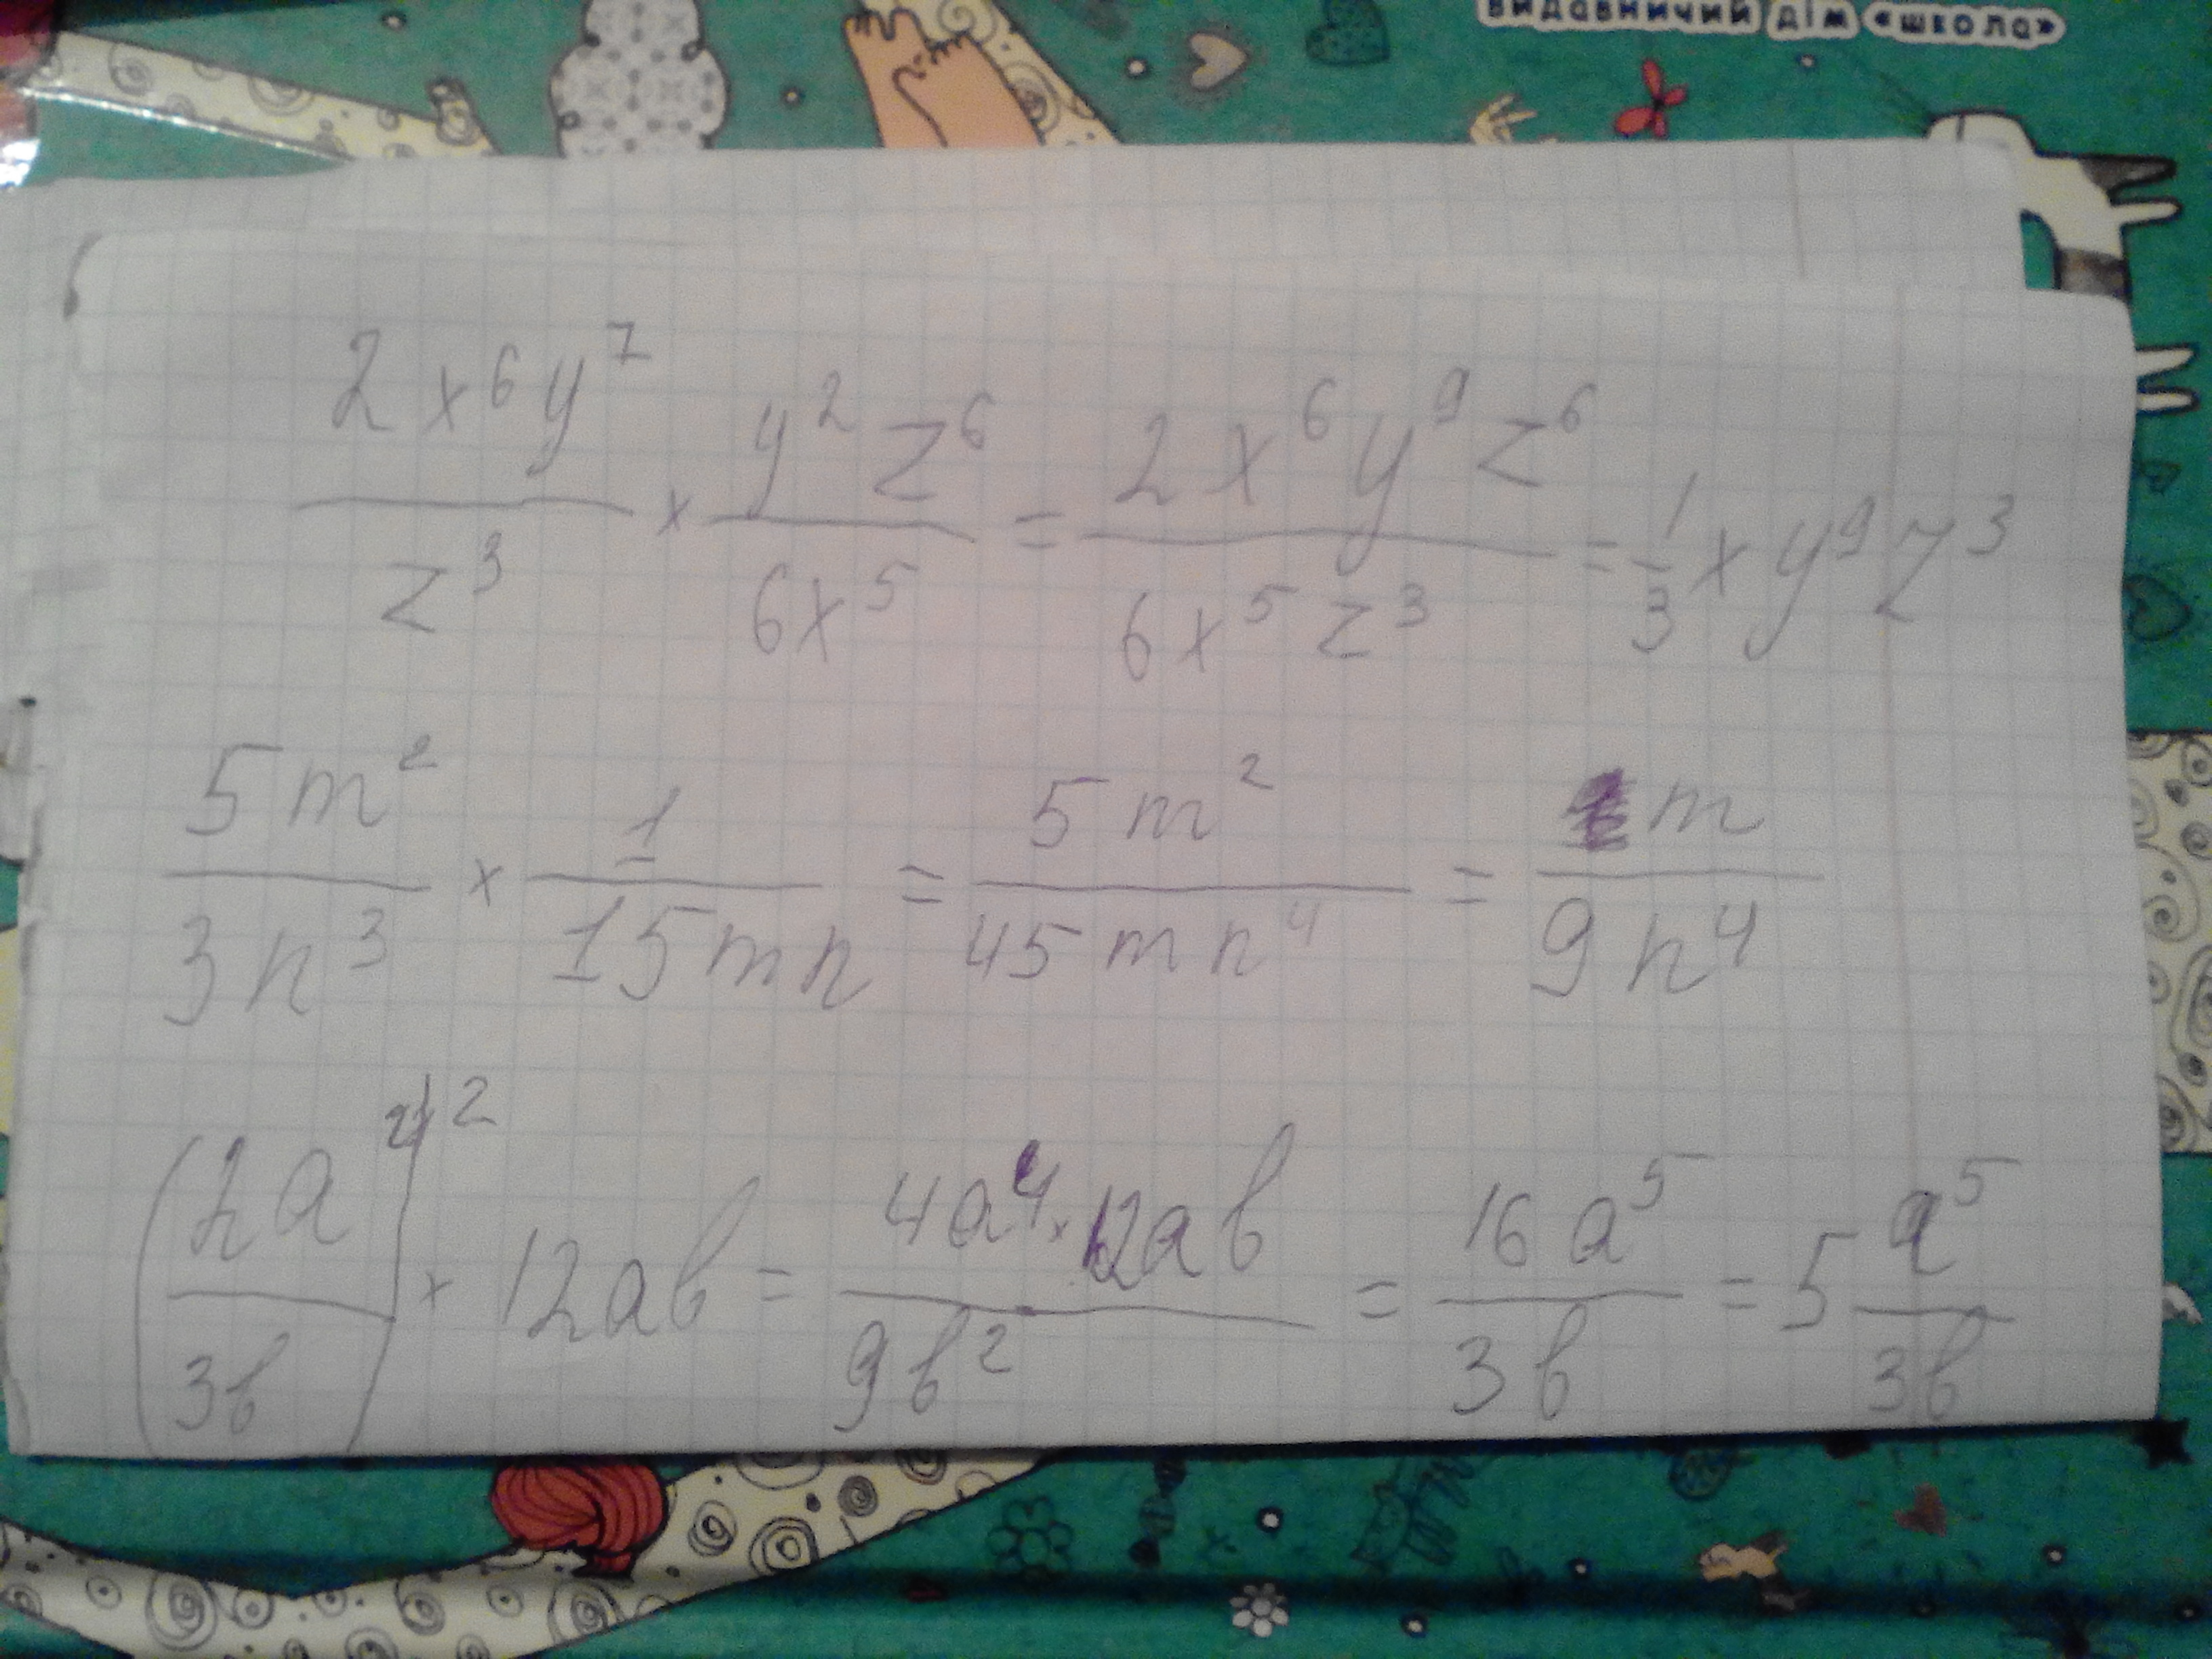 видавничий дім «школа»
2x⁶y⁷/z³ × y²z⁶/6x⁵ = 2x⁶y⁹z⁶/6x⁵z³ = 1/3 xy⁹z³
5m²/3n³ × 1/15mn = 5m²/45mn⁴ = m/9n⁴
(2a²/3в)² × 12aв = 4a⁴×12aв/9в² = 16a⁵/3в = 5 a⁵/3в